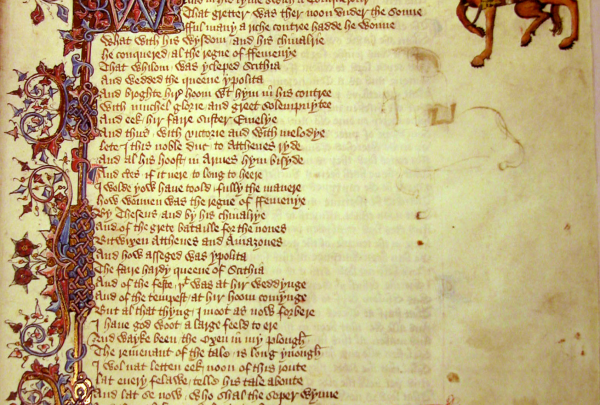 And in his tyme swich a Conquerour
That gretter was ther noon vnder the sonne
fful many a riche contree hadde he wonne
What with his wysdom and his chiualrie
he conquered al the regne of ffemenye
That whilom was ycleped Scithia
And wedded the queene ypolita
And broghte hir hoom wt hym in his contree
With muchel glorie and greet solempnytee
And eek hir faire suster Emelye
And thus with victorie and with melodye
Lete I this noble duc to Atthenes ryde
And al his hoost in Armes hym bisyde
And certes if it nere to long to heere
I wolde yow haue toold fully the manere
how wonnen was the regne of ffemenye
By Theseus and by his chiualrye
And of the grete bataille for the nones
Bitwixen atthenes and Amazones
And how asseged was ypolita
The faire hardy queene of Scithia
And of the feste þt was at hir weddynge
And of the tempest at hir hoom comynge
But al that thyng I moot as now forbere
I haue god woot a large feeld to ere
And wayke been the Oxen in my plough
The remenant of the tale is long ynough
I wol nat letten eek noon of this route
lat euery felawe telle his tale aboute
And lat se now who shal the soper wynne